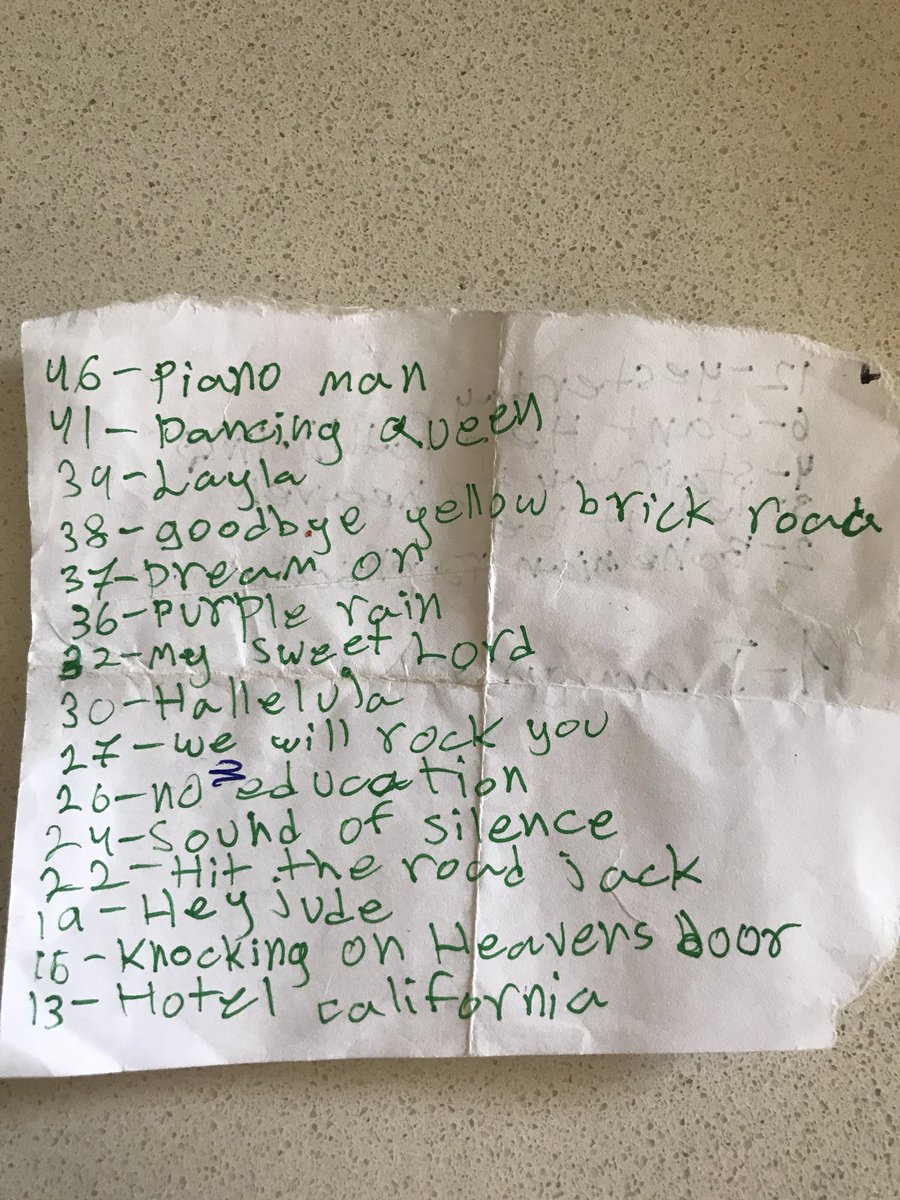 46-Piano man
41-Dancing queen
39-Layla
38-goodbye yellow brick road
37-Dream on
36-Purple rain
32-My sweet Lord
30-Halleluja
27-we will rock you
26-no education
24-Sound of silence
22-Hit the road jack
19-Hey jude
16-Knocking on Heavens door
13-Hotel california